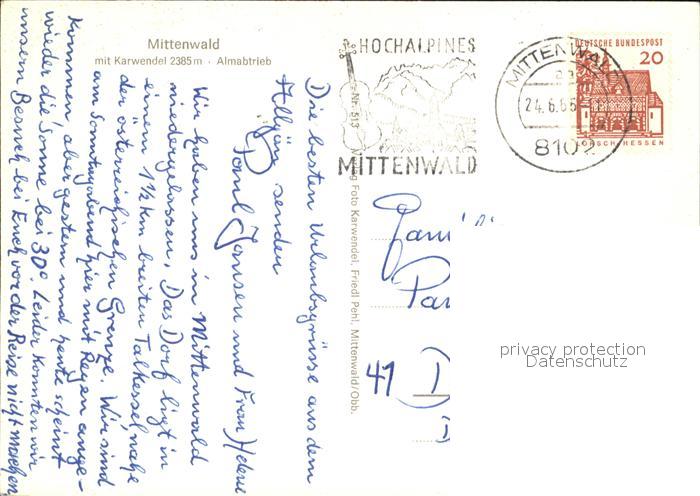 Mittenwald
mit Karwendel 2385m · Almabtrieb
Die besten Urlaubsgrüsse aus dem
Allgäu senden
Paul Jansen und Frau Helene
Wir haben uns in Mittenwald
niedergelassen. Das Dorf liegt in
einem 1½ km breiten Talkessel nahe
der österreichischen Grenze. Wir sind
am Sonntagabend hier mit Regen ange-
kommen, aber gestern und heute scheint
wieder die Sonne bei 30°. Leider konnten wir
unsern Besuch bei Euch vor der Reise nicht machen
Nr. 513
Verlag Foto Karwendel, Friedl Pehl, Mittenwald/Obb.
HOCHALPINES
MITTENWALD
MITTENWALD
24.6.65
8102
DEUTSCHE BUNDESPOST
20
LORSCH/HESSEN
41
privacy protection
Datenschutz